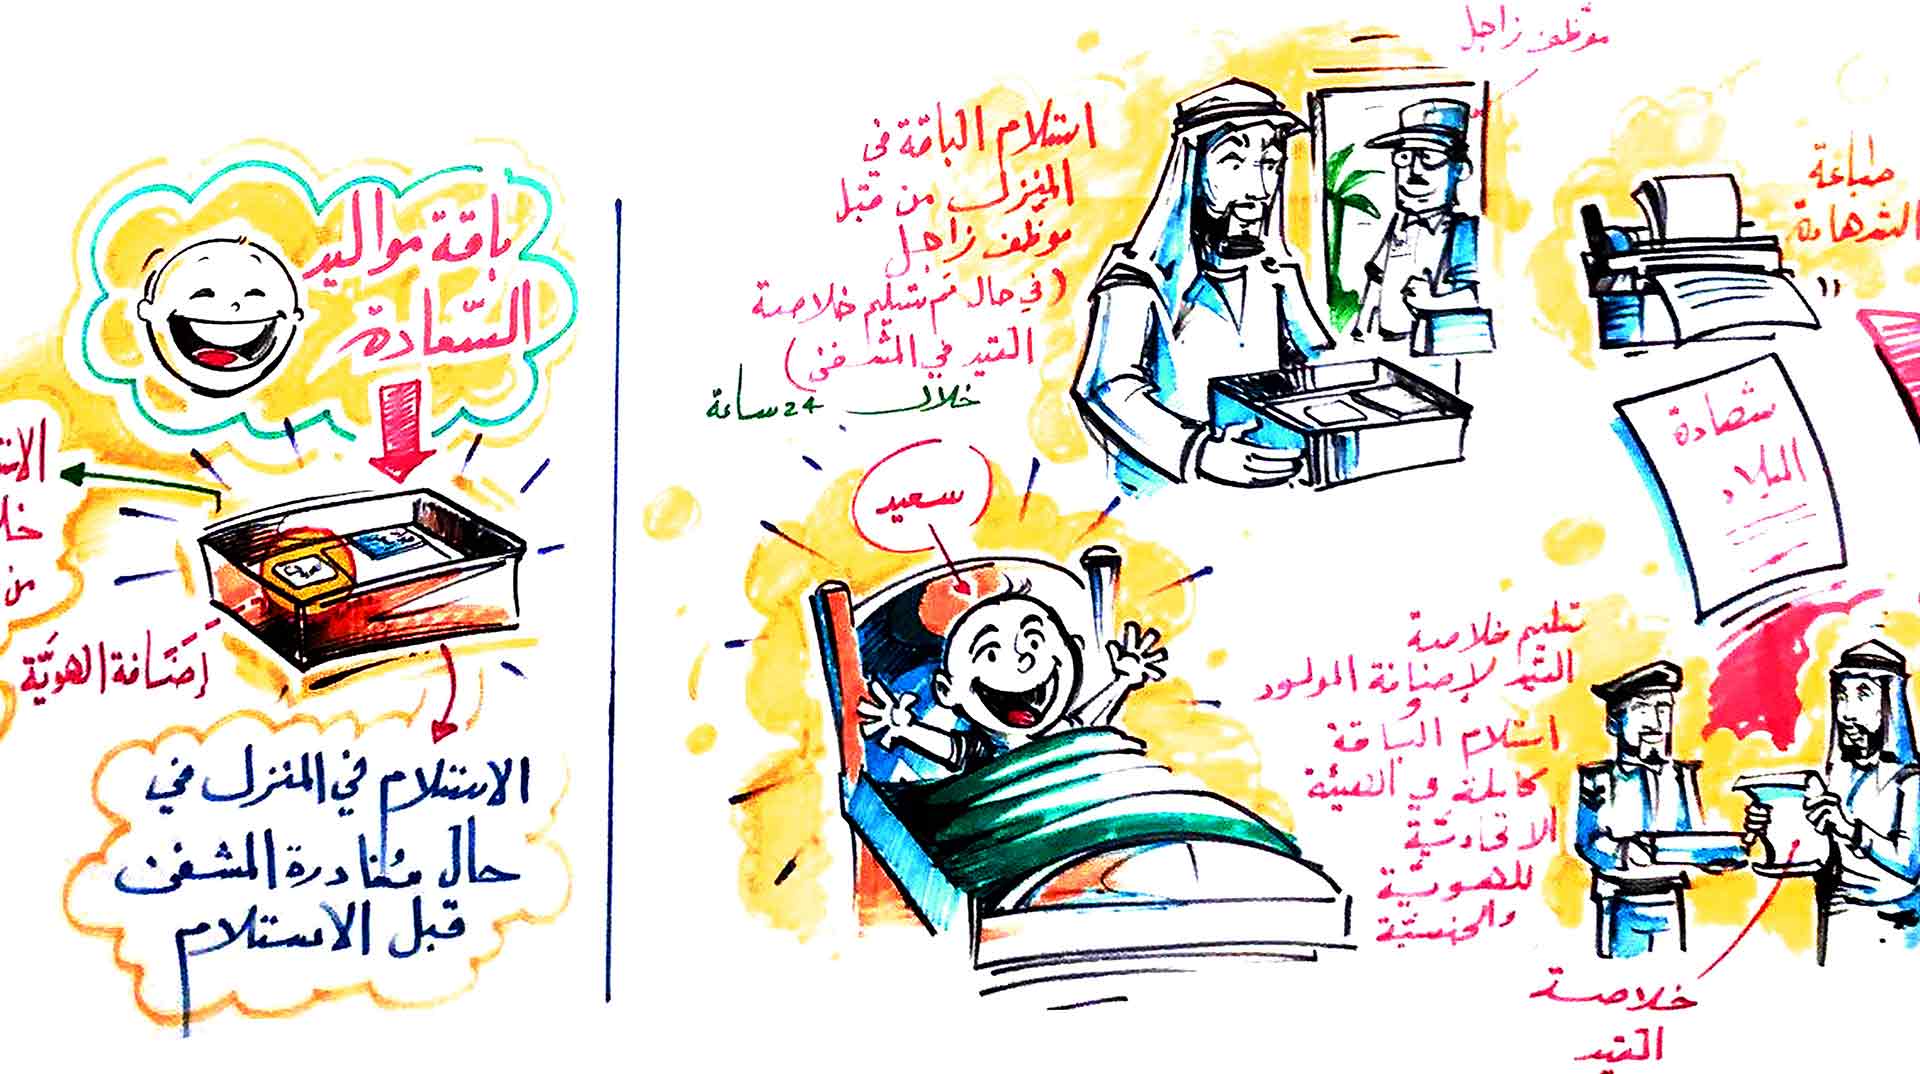 موظف زاجل
طباعة
الشهادة
شهادة
الميلاد
استلام الباقة في
المنزل من قبل
موظف زاجل
(في حال تم تسليم خلاصة
القيد في المشفى)
خلال 24 ساعة
سعيد
تسليم خلاصة
القيد لإضافة المولود
و
استلام الباقة
كاملة في الهيئة
الاتحاديّة
للهويّة
والجنسيّة
خلاصة
القيد
باقة مواليد
السّعادة
إضَافة الهويَّة
الاستلام في المنزل في
حال مُغادرة المشفى
قبل الاستلام